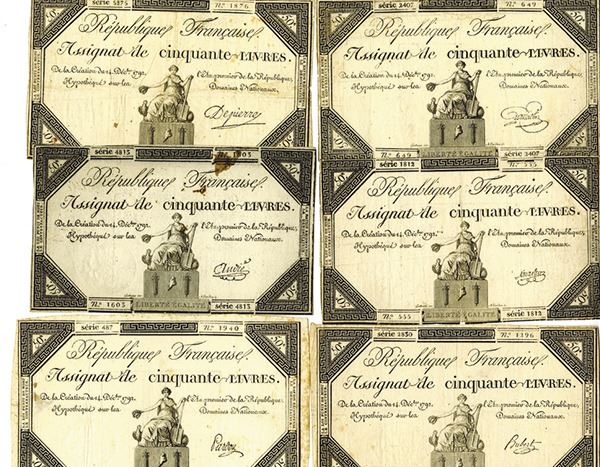 série 5375 N.° 1876
République Française.
Assignat de cinquante LIVRES.
De la Création du 14 Déc.bre 1792.
Hypothéqué sur les
l'An premier de la République,
Domaines Nationaux.
Depierre
50
série 2407 N.° 649
République Française.
Assignat de cinquante LIVRES.
De la Création du 14 Déc.bre 1792.
Hypothéqué sur les
l'An premier de la République,
Domaines Nationaux.
50
N.° 649 LIBERTÉ EGALITÉ série 2407
50 50
série 4813 1603
République Française.
Assignat de cinquante LIVRES.
De la Création du 14 Déc.bre 1792.
Hypothéqué sur les
l'An premier de la République,
Domaines Nationaux.
André
N.° 1603 LIBERTÉ EGALITÉ série 4813
50 50
50 série 1812 N.° 555 50
République Française.
Assignat de cinquante LIVRES.
De la Création du 14 Déc.bre 1792.
Hypothéqué sur les
l'An premier de la République,
Domaines Nationaux.
N.° 555 LIBERTÉ EGALITÉ série 1812
50 50
50 série 487 N.° 1940 50
République Française.
Assignat de cinquante LIVRES.
De la Création du 14 Déc.bre 1792.
Hypothéqué sur les
l'An premier de la République,
Domaines Nationaux.
50 série 2830 N.° 1396 50
République Française.
Assignat de cinquante LIVRES.
De la Création du 14 Déc.bre 1792.
Hypothéqué sur les
l'An premier de la République,
Domaines Nationaux.